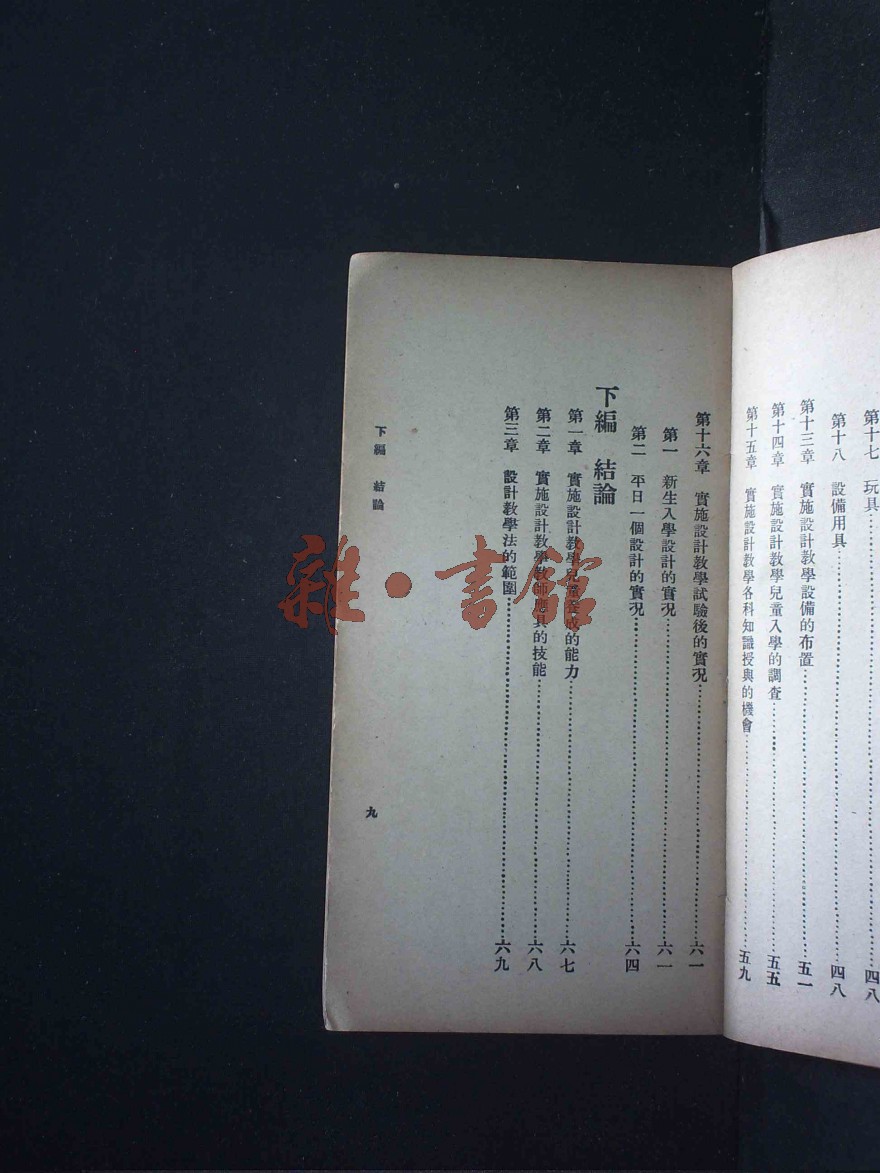 第十七 玩具……四八
第十八 設備用具……四八
第十三章 實施設計教學設備的布置……五一
第十四章 實施設計教學兒童入學的調查……五五
第十五章 實施設計教學各科知識授與的機會……五九
第十六章 實施設計教學試驗後的實況……六一
第一 新生入學設計的實況……六一
第二 平日一個設計的實況……六四
下編 結論
第一章 實施設計教學兒童養成的能力……六七
第二章 實施設計教學教師應具的技能……六八
第三章 設計教學法的範圍……六九
下編 結論
九
雜·書館